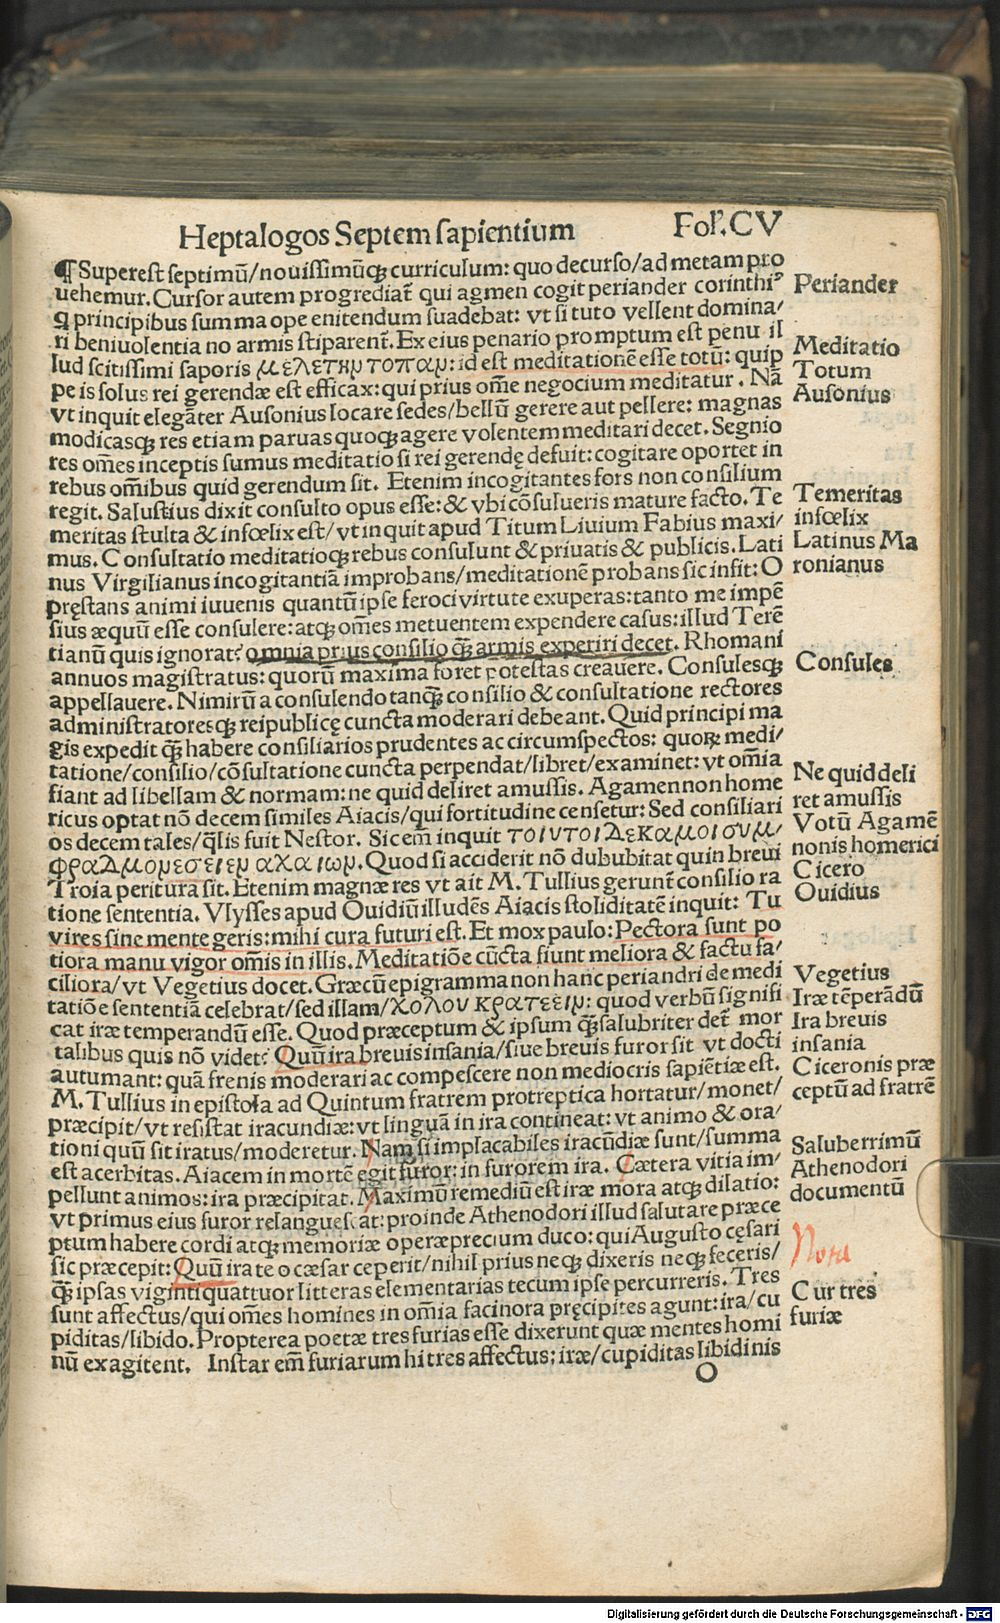 Heptalogos Septem sapientium Fol'. CV
¶ Superest septimū/nouissimūq; curriculum: quo decurso/ad metam pro
uehemur. Cursor autem progrediat̃ qui agmen cogit periander corinthiꝰ
q principibus summa ope enitendum suadebat: vt si tuto vellent domina/
ri beniuolentia no armis stiparent̃. Ex eius penario promptum est penu il
lud scitissimi saporis μελετην τοπαν: id est meditationē esse totū: quip
pe is solus rei gerendæ est efficax: qui prius om̄e negocium meditatur. Nā
vt inquit elegāter Ausonius locare sedes/bellū gerere aut pellere: magnas
modicasq; res etiam paruas quoq; agere volentem meditari decet. Segnio
res om̄es inceptis sumus meditatio si rei gerendę defuit: cogitare oportet in
rebus om̄ibus quid gerendum sit. Etenim incogitantes fors non consilium
regit. Salustius dixit consulto opus esse: & vbi cōsulueris mature facto. Te
meritas stulta & infœlix est/vt inquit apud Titum Liuium Fabius maxi/
mus. Consultatio meditatioq; rebus consulunt & priuatis & publicis. Lati
nus Virgilianus incogitantiā improbans/meditationē probans sic infit: O
pręstans animi iuuenis quantū ipse feroci virtute exuperas: tanto me impē
sius æquū esse consulere: atq; om̄es metuentem expendere casus: illud Terē
tianū quis ignorat? omnia prius consilio q̄; armis experiri decet. Rhomani
annuos magistratus: quorū maxima foret potestas creauere. Consulesq;
appellauere. Nimirū a consulendo tanq̄; consilio & consultatione rectores
administratoresq; reipublicę cuncta moderari debeant. Quid principi ma
gis expedit q̄; habere consiliarios prudentes ac circumspectos: quoꝝ medi/
tatione/consilio/cōsultatione cuncta perpendat/libret/examinet: vt om̄ia
fiant ad libellam & normam: ne quid deliret amussis. Agamemnon home
ricus optat nō decem similes Aiacis/qui fortitudine censetur: Sed consiliari
os decem tales/q̄lis fuit Nestor. Sic em̄ inquit τοιυτοι Δεκα μοι συμ/
φραΔμονεσ ειεν αχαιων. Quod si acciderit nō dububitat quin breui
Troia peritura sit. Etenim magnæ res vt ait M. Tullius gerunt̃ consilio ra
tione sententia. Vlysses apud Ouidiū illudēs Aiacis stoliditatē inquit: Tu
vires sine mente geris: mihi cura futuri est. Et mox paulo: Pectora sunt po
tiora manu vigor om̄is in illis. Meditatiōe cūcta fiunt meliora & factu fa/
ciliora/vt Vegetius docet. Græcū epigramma non hanc periandri de medi
tatiōe sententiā celebrat/sed illam/χολου κρατεειν: quod verbū signifi
cat iræ temperandū esse. Quod præceptum & ipsum q̄; salubriter det̃ mor
talibus quis nō videt? Quū ira breuis insania/siue breuis furor sit vt docti
autumant: quā frenis moderari ac compescere non mediocris sapiētiæ est.
M. Tullius in epistola ad Quintum fratrem protreptica hortatur/monet/
præcipit/vt resistat iracundiæ: vt linguā in ira contineat: vt animo & ora/
tioni quū sit iratus/moderetur. Nam si implacabiles iracūdiæ sunt/summa
est acerbitas. Aiacem in mortē egit furor: in furorem ira. Cætera vitia im/
pellunt animos: ira præcipitat. Maximū remediū est iræ mora atq; dilatio:
vt primus eius furor relanguescat: proinde Athenodori illud salutare præce
ptum habere cordi atq; memoriæ operæprecium duco: qui Augusto cęsari
sic præcepit: Quū ira te o cæsar ceperit/nihil prius neq; dixeris neq; feceris/
q̄; ipsas viginti quattuor litteras elementarias tecum ipse percurreris. Tres
sunt affectus/qui om̄es homines in om̄ia facinora pręcipites agunt: ira/cu
piditas/libido. Propterea poetæ tres furias esse dixerunt quæ mentes homi
nū exagitent. Instar em̄ furiarum hi tres affectus; iræ/cupiditas libidinis
O
Periander
Meditatio
Totum
Ausonius
Temeritas
infœlix
Latinus Ma
ronianus
Consules
Ne quid deli
ret amussis
Votū Agamē
nonis homerici
Cicero
Ouidius
Vegetius
Iræ tēperādū
Ira breuis
insania
Ciceronis præ
ceptū ad fratrē
Saluberrimū
Athenodori
documentū
Nota
Cur tres
furiæ
Digitalisierung gefördert durch die Deutsche Forschungsgemeinschaft - DFG